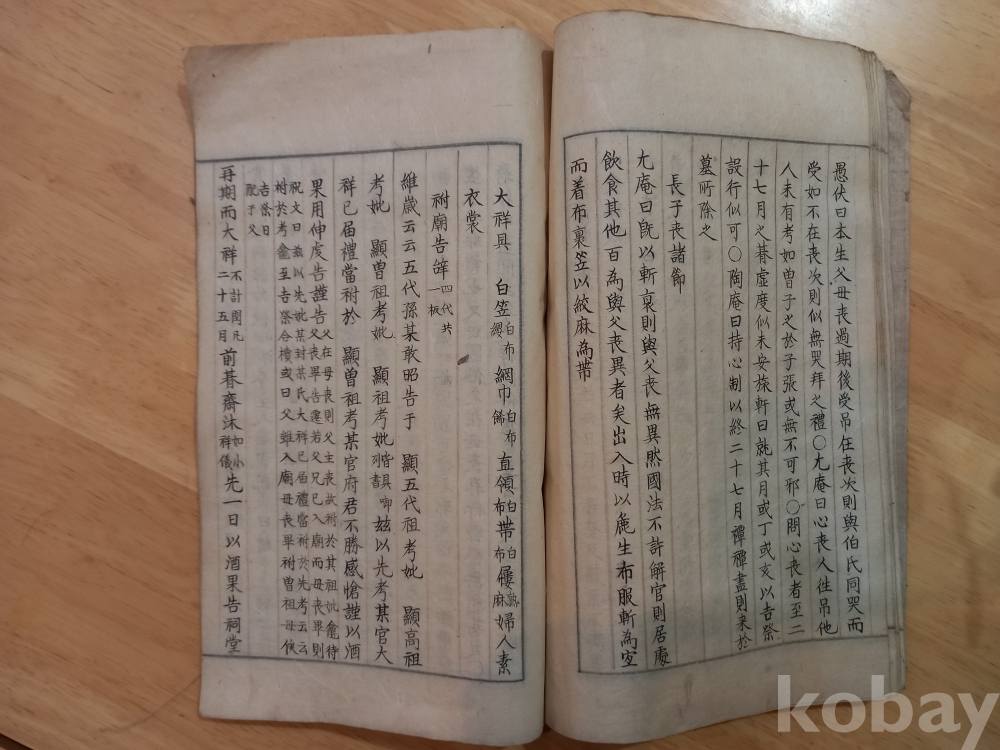 愚伏曰本生父母喪過期後受吊在喪次則與伯氏同哭而
受如不在喪次則似無哭拜之禮○尤庵曰心喪人往吊他
人未有考如曾子之於子張或無不可邪○問心喪者至二
十七月之朞虛度似未安旅軒曰就其月或丁或亥以吉祭
設行似可○陶庵曰持心制以終二十七月禫禫盡則来於
墓所除之
長子喪諸節
尤庵曰既以斬衰則與父喪無異然國法不許解官則居處
飲食其他百為與父喪異者矣出入時以麁生布服斬為宜
而着布裹笠以絞麻為帶
大祥具 白笠白布纓網巾白布餙直領白布帶白布屨熟麻婦人素
衣裳
祔廟告辝四代共一板
維歲云云五代孫某敢昭告于 顯五代祖考妣 顯高祖
考妣 顯曽祖考妣 顯祖考妣皆具列書玆以先考某官大
祥已届禮當祔於 顯曽祖考某官府君不勝感愴謹以酒
果用伸虔告謹告父在母喪則父主喪故祔於其祖妣龕待父喪畢告遷若父兄已入廟而母喪畢則
祝文曰玆以先妣某封某氏大祥已届禮當祔於先考云云祔於考龕至吉祭合櫝或曰父雖入廟母喪畢祔曽祖母俟
吉祭日配于父
再期而大祥不計閏凡二十五月前朞齋沐如小祥儀先一日以酒果告祠堂
kobay